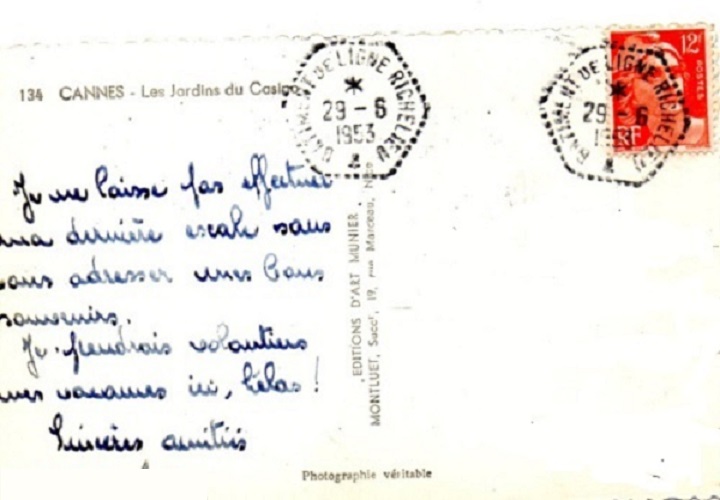 134 CANNES - Les Jardins du Casino
BATIMENT DE LIGNE RICHELIEU
29 - 6
1953
BATIMENT DE LIGNE RICHELIEU
29 - 6
12F
POSTES
RF
Je ne laisse pas effectuer
ma dernière escale sans
vous adresser mes bons
souvenirs.
Je prendrais volontiers
mes vacances ici, hélas !
Sincères amitiés
EDITIONS D'ART MUNIER
MONTLUET, Succr, 19, rue Marceau, Nice
Photographie véritable